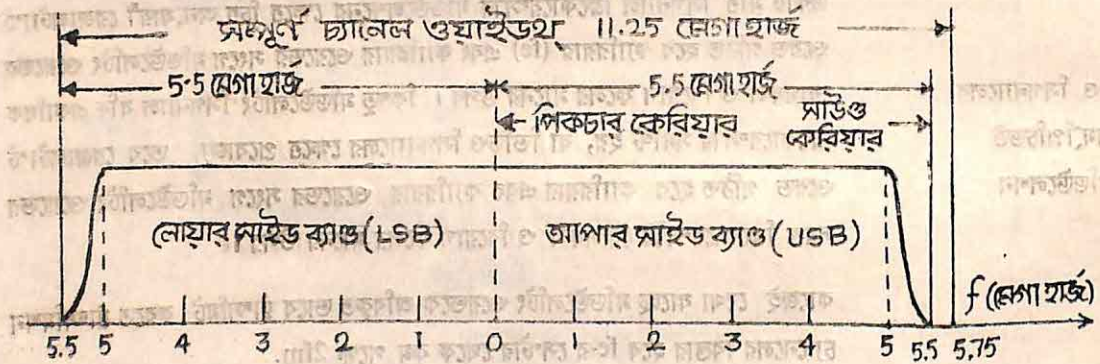 সম্পূর্ণ চ্যানেল ওয়াইডথ্ 11.25 মেগা হার্জ
5.5 মেগা হার্জ 5.5 মেগা হার্জ
পিকচার কেরিয়ার সাউণ্ড কেরিয়ার
লোয়ার সাইড ব্যাণ্ড (LSB) আপার সাইড ব্যাণ্ড (USB)
f (মেগা হার্জ)
5.5 5 4 3 2 1 0 1 2 3 4 5 5.5 5.75